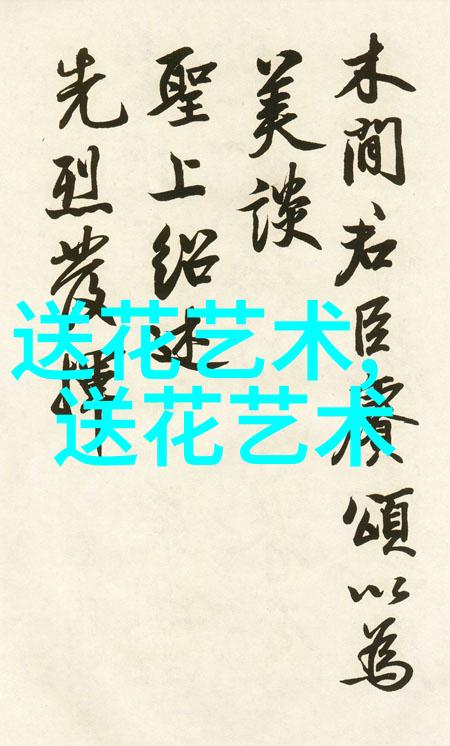 木間君臣賡頌以為
美談
聖上紹述
先烈發揮
送花艺术,
送花艺术